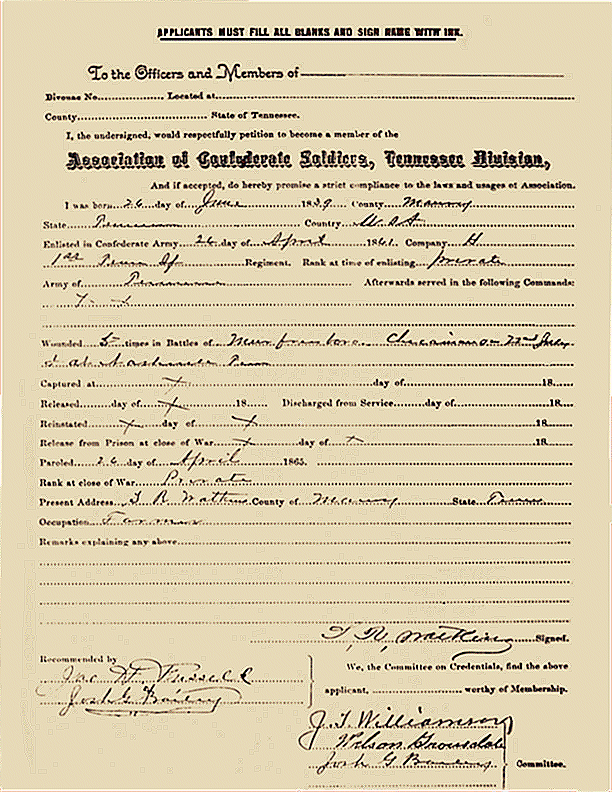 APPLICANTS MUST FILL ALL BLANKS AND SIGN NAME WITH INK.
To the Officers and Members of
Bivouac No. Located at
County State of Tennessee.
I, the undersigned, would respectfully petition to become a member of the
Association of Confederate Soldiers, Tennessee Division,
And if accepted, do hereby promise a strict compliance to the laws and usages of Association.
I was born 26 day of June 1839 County Maury
State Tennessee Country USA
Enlisted in Confederate Army 26 day of April 1861. Company H
1st Tenn Regiment. Rank at time of enlisting private
Army of Tennessee Afterwards served in the following Commands:
Wounded 5 times in Battles of Murfreesboro 22nd July
& at Nashville Tenn
Captured at x day of 18
Released day of x 18 Discharged from Service day of 18
Reinstated x day of x 18
Release from Prison at close of War x day of x 18
Paroled 26 day of April 1865.
Rank at close of War Private
Present Address T R Watkins County of Maury State Tenn
Occupation Farmer
Remarks explaining any above
T. R. Watkins Signed.
Recommended by
We, the Committee on Credentials, find the above
Russell
applicant, worthy of Membership.
Josh G. Bailey
J. T. Williamson
Wilson
Josh G Bailey Committee.